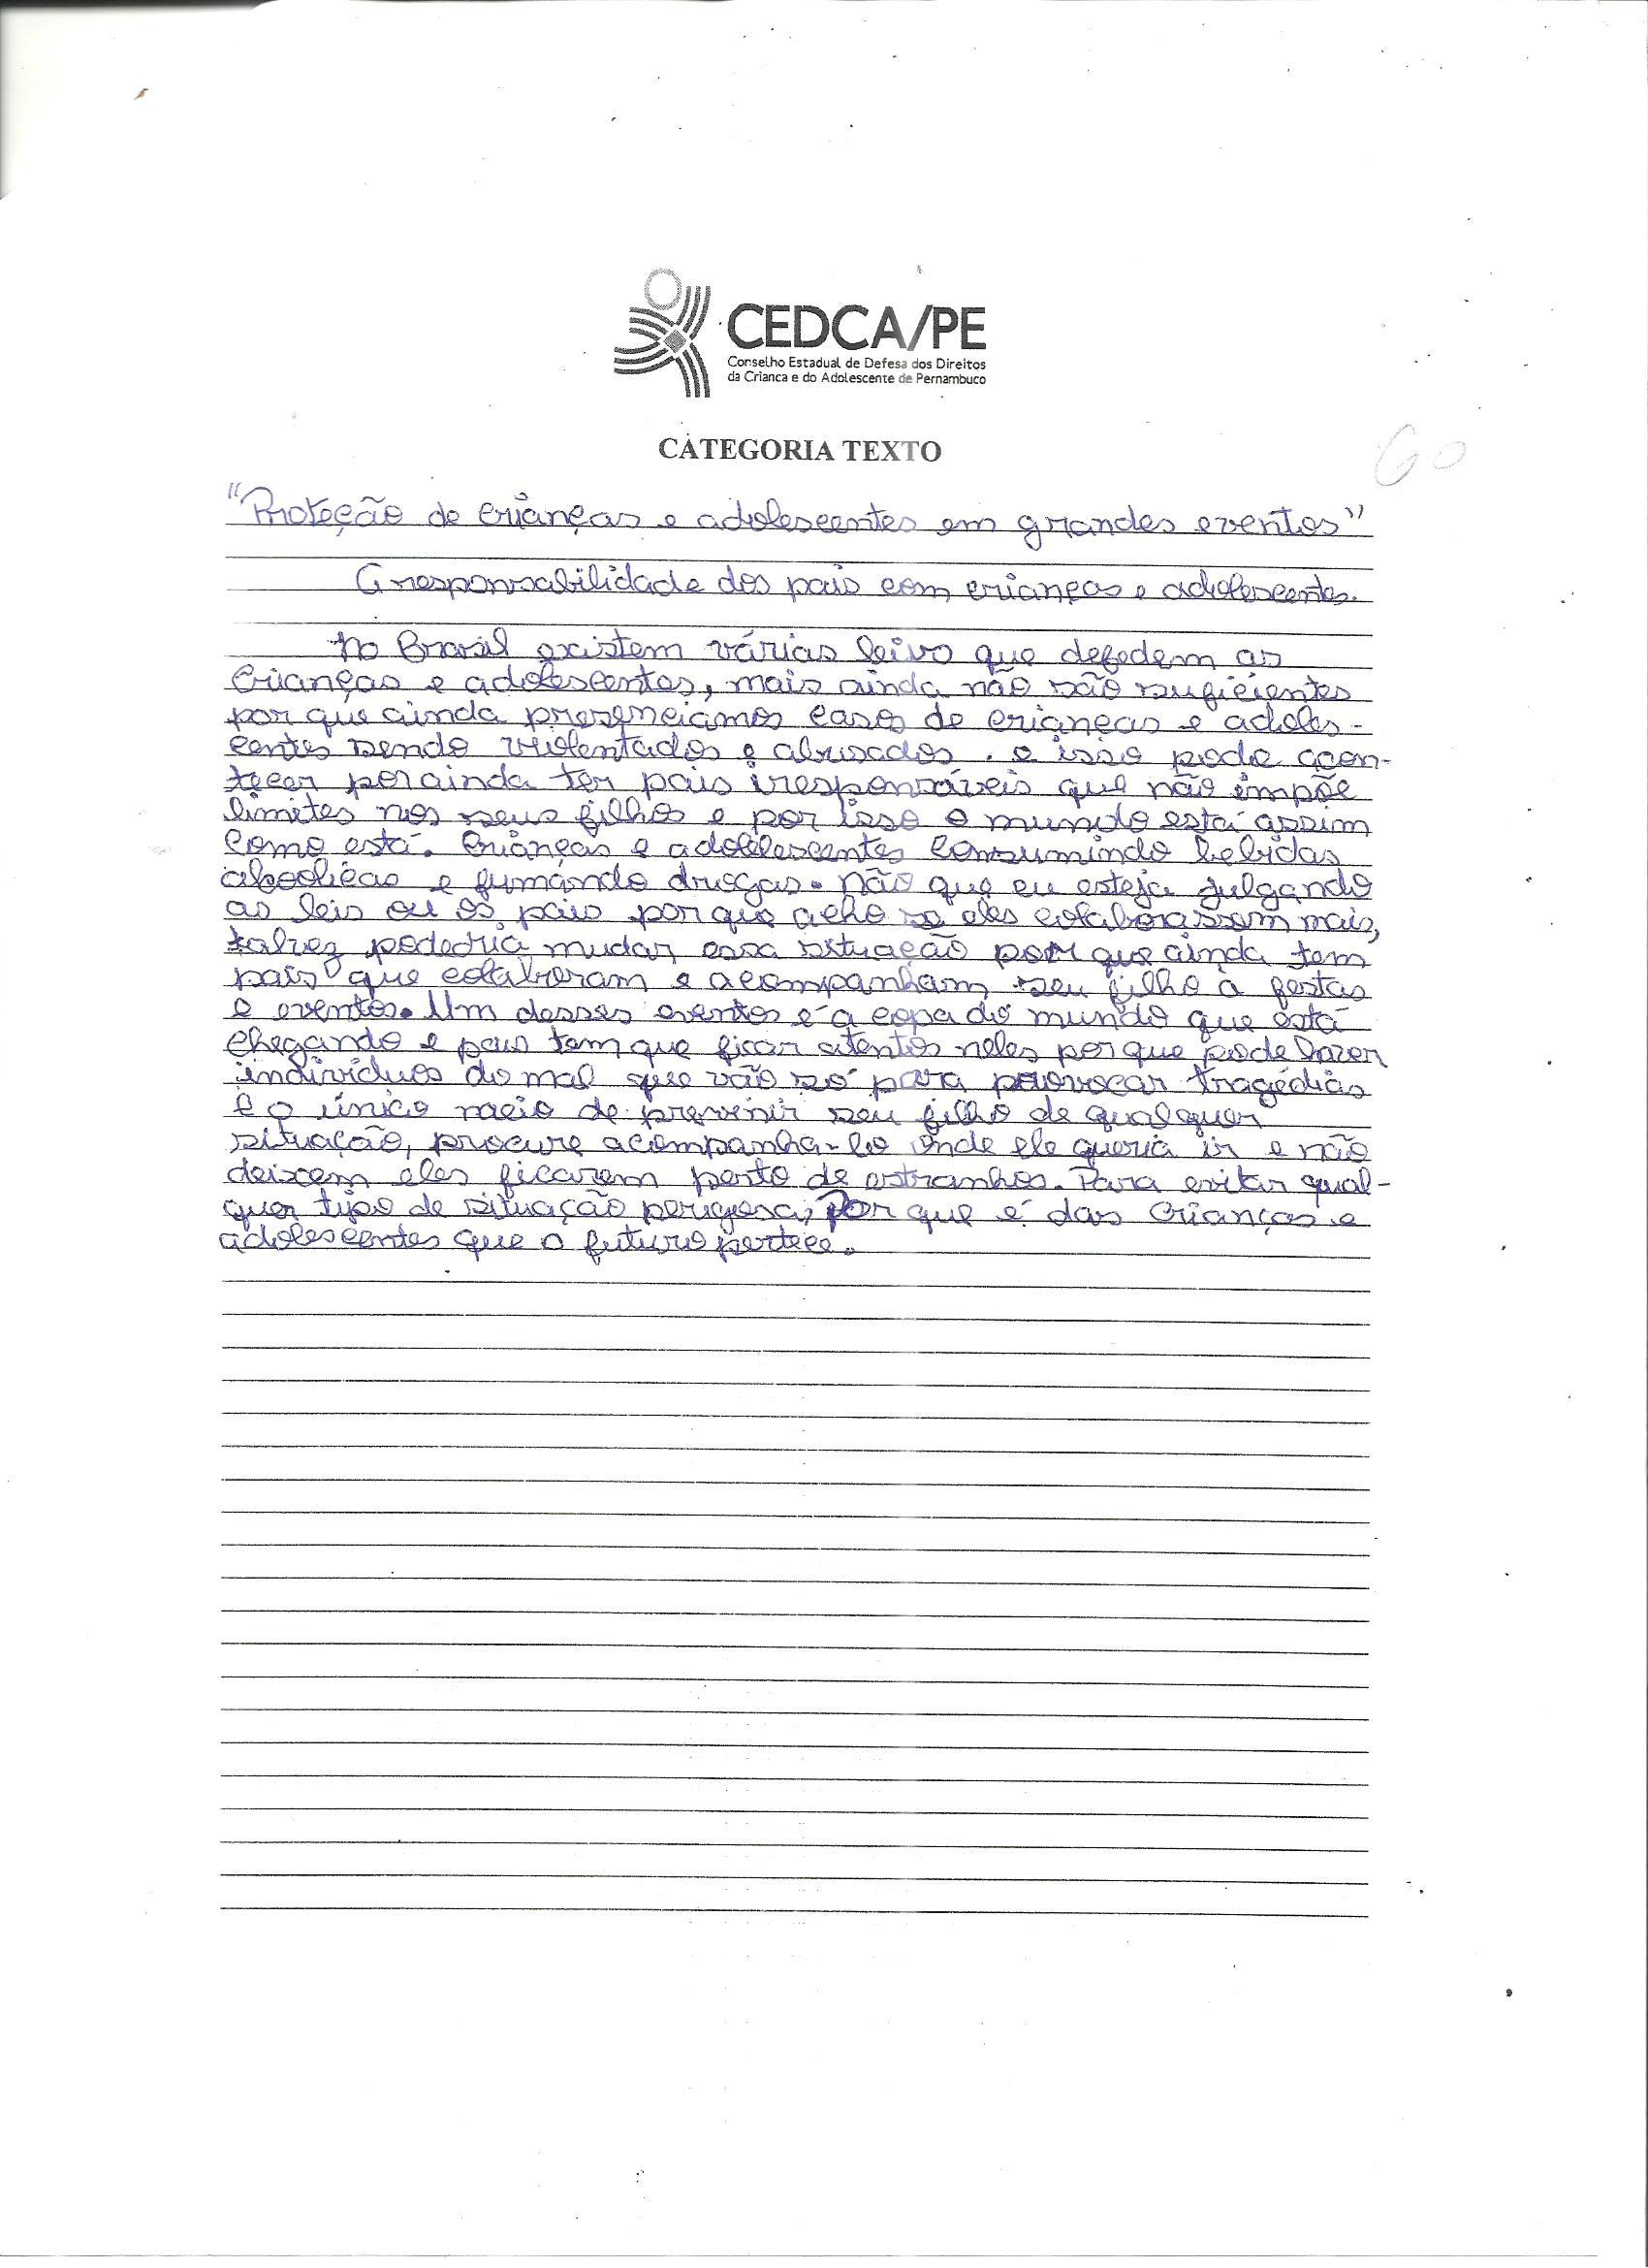 CEDCA/PE
Conselho Estadual de Defesa dos Direitos
da Crianca e do Adolescente de Pernambuco
CATEGORIA TEXTO
60
"Proteção de crianças e adolescentes em grandes eventos"
A responsabilidade dos pais com crianças e adolescentes.
No Brasil existem várias que defedem as
Crianças e adolescentes, mais ainda não são suficientes
por que ainda presenciamos casos de crianças e adoles-
centes sendo violentados e abusados. e isso pode acon-
tecer porainda ter pais irresponsáveis que não impõe
limites nos seus filhos e por isso o mundo está assim
como está. Crianças e adolelescentes consumindo bebidas
alcoolicas e fumando drogas. Não que eu esteja julgando
as leis ou os pais por que acho se eles colaborassem mais,
talvez poderia mudar essa situação por que ainda tem
pais que colaboram e acompanham seu filho a festas
e eventos. Um desses eventos é a copa do mundo que está
chegando e pais tem que ficar atentos neles por que pode
indivíduos do mal que vão só para provocar tragédias
E o único meio de prevenir seu filho de qualquer
situação, procure acompanha-lo onde ele queria ir e não
deixem eles ficarem perto de estranhos. Para evitar qual-
quer tipo de situação perigosa, Por que é das crianças e
adolescentes que o futuro pertece.